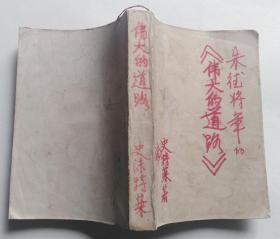 朱德将军的
《伟大的道路》
史特莱著
伟大的道路
史沫特莱